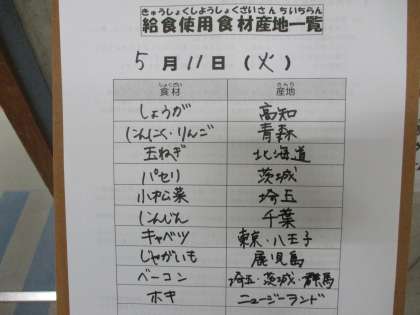 きゅうしょくしようしょくざいさんちいちらん
給食使用食材産地一覧
5月11日(火)
しょくざい さんち
食材 産地
しょうが 高知
にんにく・りんご 青森
玉ねぎ 北海道
パセリ 茨城
小松菜 埼玉
にんじん 千葉
キャベツ 東京・八王子
じゃがいも 鹿児島
ベーコン 埼玉・茨城・群馬
ホキ ニュージーランド